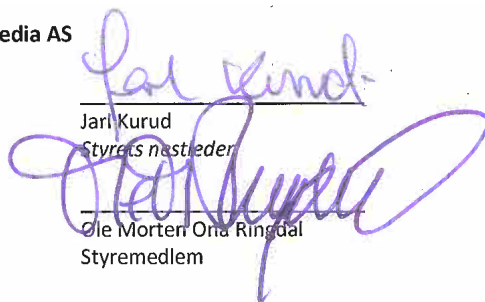 edia AS
Jarl Kurud
Jarl Kurud
Styrets nestleder
Ole Morten Ona Ringdal
Styremedlem